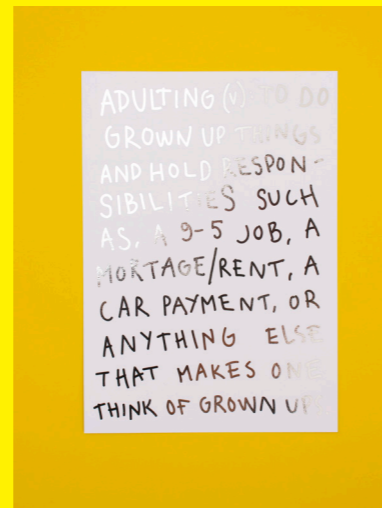 ADULTING (V) TO DO
GROWN UP THINGS
AND HOLD RESPON-
SIBILITIES SUCH
AS, A 9-5 JOB, A
MORTAGE/RENT, A
CAR PAYMENT, OR
ANYTHING ELSE
THAT MAKES ONE
THINK OF GROWN UPS